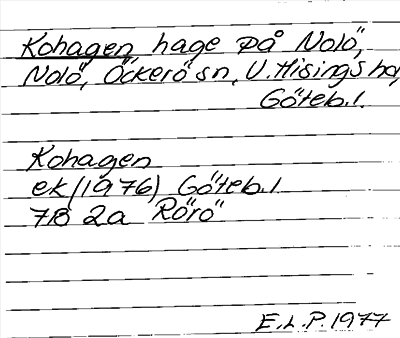 Kohagen, hage på Nolö,
Nolö, Öckerö sn, V. Hisings hd,
Göteb.l.
Kohagen
ek (1976) Göteb.l
7B 2a Rörö
E.L.P. 1977